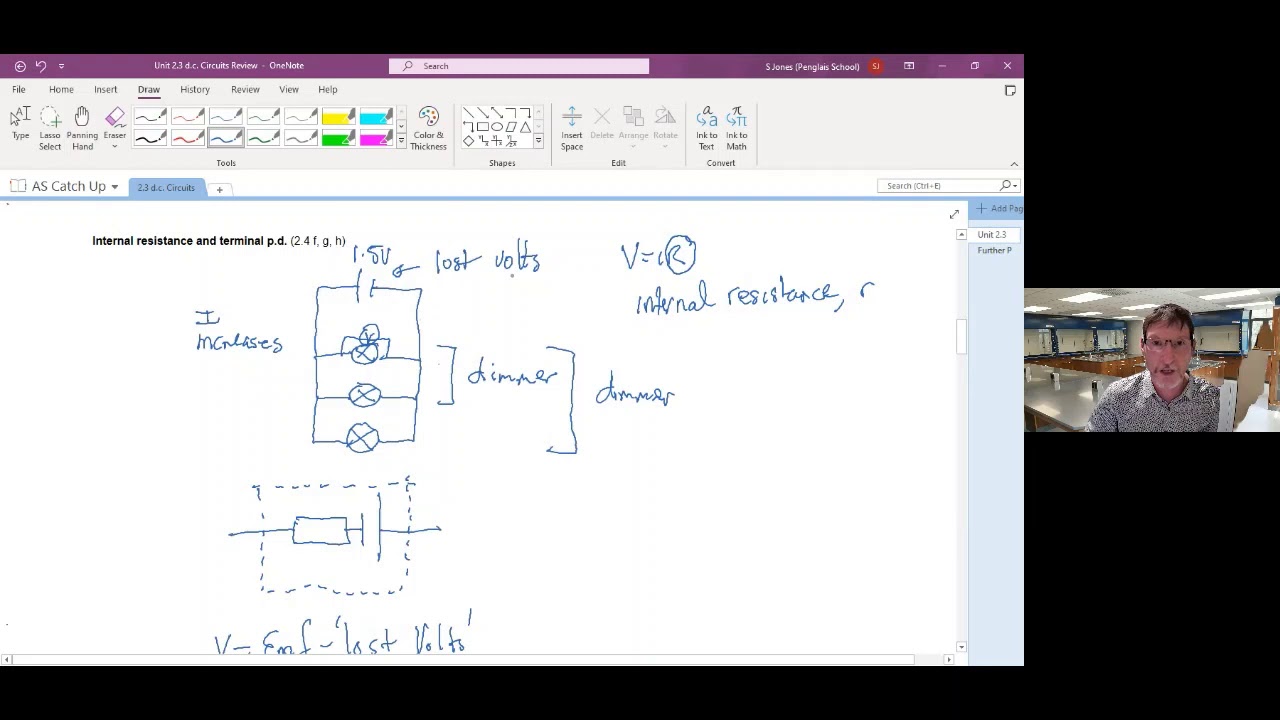 Unit 2.3 d.c. Circuits Review - OneNote
Search
S Jones (Penglais School)
SJ
File Home Insert Draw History Review View Help
Type
Lasso Select
Panning Hand
Eraser
Color & Thickness
Insert Space
Delete
Arrange
Rotate
Ink to Text
Ink to Math
Tools
Shapes
Edit
Convert
AS Catch Up
2.3 d.c. Circuits
Search (Ctrl+E)
Add Pag
Unit 2.3
Further P
Internal resistance and terminal p.d. (2.4 f, g, h)
1.5V
lost volts
V=IR
internal resistance, r
I
increases
dimmer
dimmer
V= Emf - 'lost Volts'